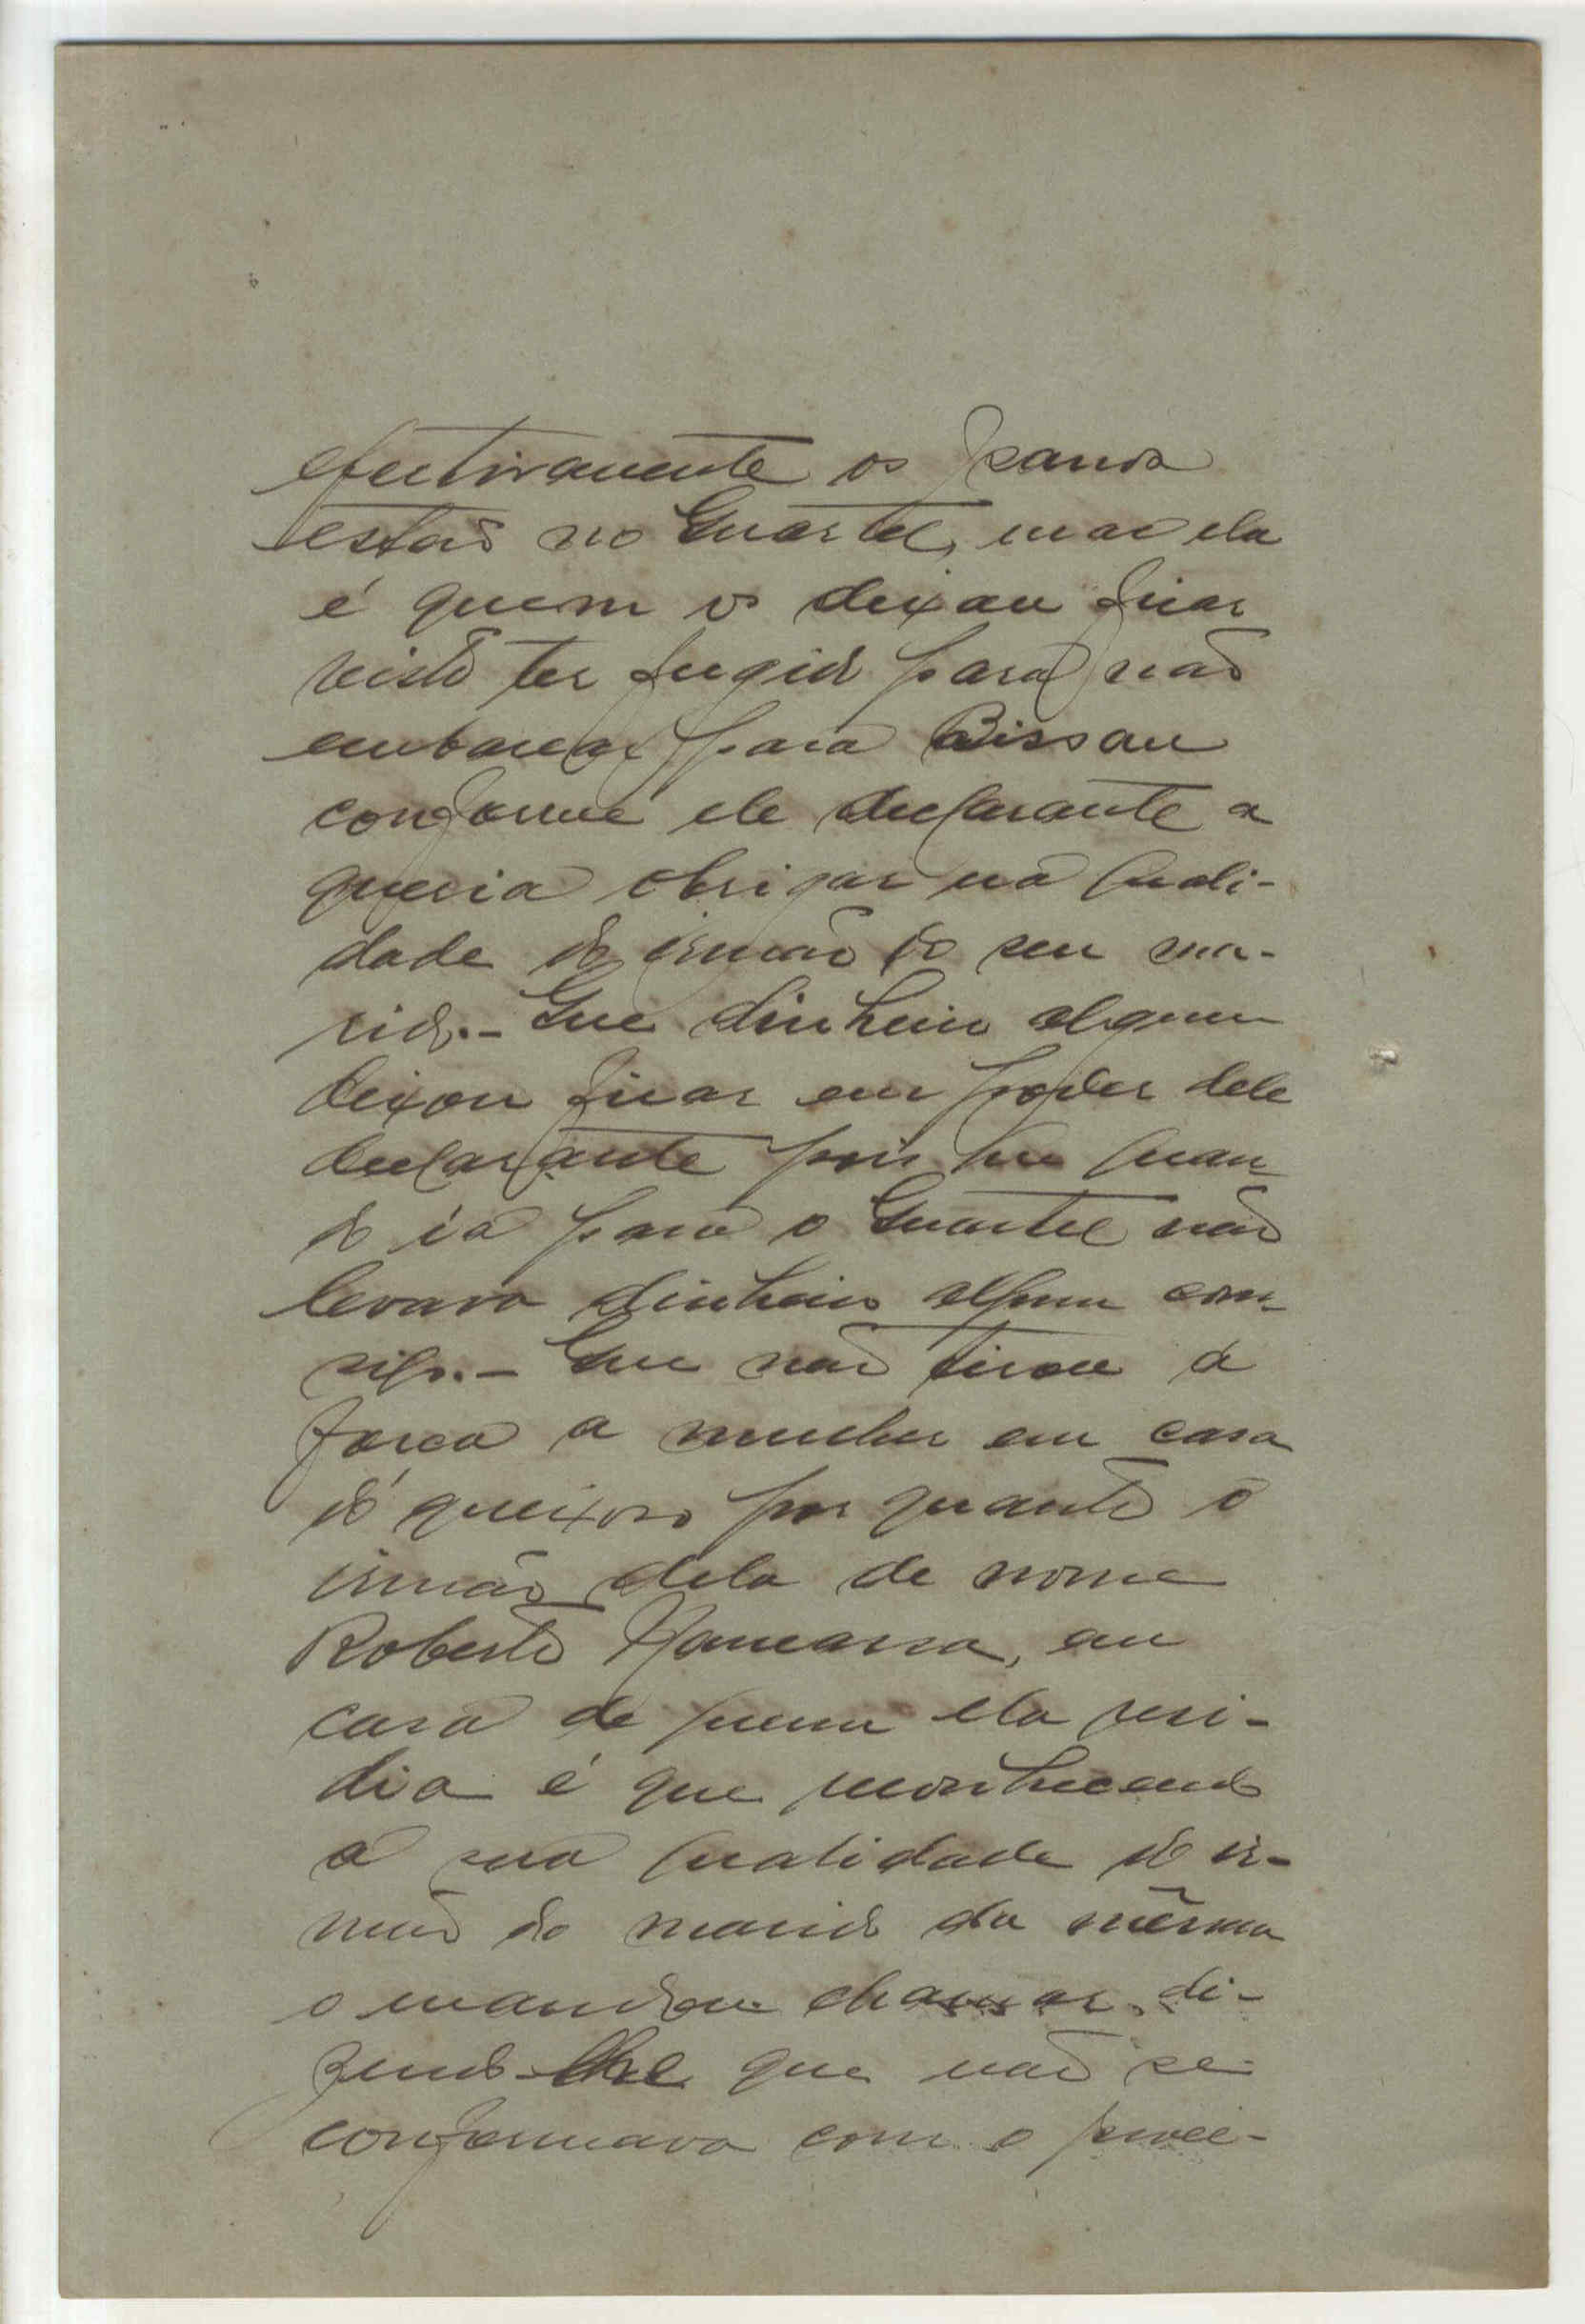 efectivamente os panos
estão no Quartel, mas ela
é quem os deixou ficar
visto ter fugido para não
embarcar para Bissau
conforme ele declarante a
queria obrigar na quali-
dade de irmão do seu ma-
rido.- Que dinheiro algum
deixou ficar em poder dele
declarante pois quan-
do ia para o Quartel não
levava dinheiro algum com-
sigo.- Que não tirou á
força a mulher em casa
do queixoso por quanto o
irmão dela de nome
Roberto em
casa de quem ela resi-
dia é que reconhecendo
a sua qualidade de ir-
mão do marido da mêsma
o mandou chamar, di-
zendo-lhe que não se
conformava com o proce-